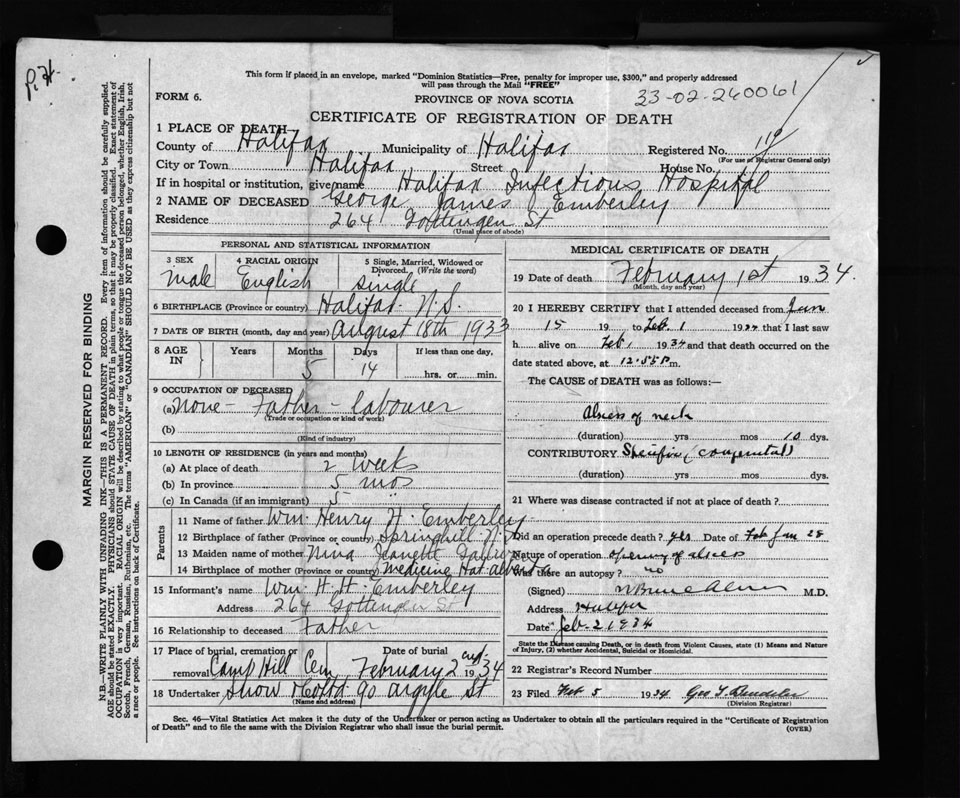 This form if placed in an envelope, marked "Dominion Statistics—Free, penalty for improper use, $300," and properly addressed
will pass through the Mail "FREE"
FORM 6.
PROVINCE OF NOVA SCOTIA
33-02-240061
CERTIFICATE OF REGISTRATION OF DEATH
1 PLACE OF DEATH—
County of Halifax Municipality of Halifax Registered No.
(For use of Registrar General only)
City or Town Halifax Street House No.
If in hospital or institution, give name Halifax Infectious Hospital
2 NAME OF DECEASED George James Emberley
Residence 264 Gottingen St
(Usual place of abode)
PERSONAL AND STATISTICAL INFORMATION
3 SEX
male
4 RACIAL ORIGIN
English
5 Single, Married, Widowed or
Divorced. (Write the word)
single
6 BIRTHPLACE (Province or country) Halifax N.S.
7 DATE OF BIRTH (month, day and year) August 18th 1933
8 AGE
IN
Years Months Days If less than one day,
5 14 hrs. or min.
9 OCCUPATION OF DECEASED
(a) None - Father - labourer
(Trade or occupation or kind of work)
(b)
(Kind of industry)
10 LENGTH OF RESIDENCE (in years and months)
(a) At place of death 2 weeks
(b) In province 5 mos
(c) In Canada (if an immigrant) 5
Parents
11 Name of father Wm. Henry H. Emberley
12 Birthplace of father (Province or country) Springhill N.S.
13 Maiden name of mother Nina Jeanett
14 Birthplace of mother (Province or country) Medicine Hat Alberta
15 Informant's name Wm H. H. Emberley
Address 264 Gottingen St
16 Relationship to deceased Father
17 Place of burial, cremation or Date of burial
removal Camp Hill Cem February 2nd 1934
18 Undertaker Snow & Co Ltd 90 Argyle St
(Name and address)
MEDICAL CERTIFICATE OF DEATH
19 Date of death February 1st 1934
(Month, day and year)
20 I HEREBY CERTIFY that I attended deceased from Jan
15 19 to Feb. 1 1934 that I last saw
h alive on Feb. 1 1934 and that death occurred on the
date stated above, at 12.55 P m.
The CAUSE OF DEATH was as follows:—
Abscess of neck
(duration) yrs mos 10 dys.
CONTRIBUTORY Specific (congenital)
(duration) yrs mos dys.
21 Where was disease contracted if not at place of death?
Did an operation precede death? yes Date of Feb Jan 28
Nature of operation opening of abscess
Was there an autopsy? no
(Signed) M.D.
Address Halifax
Date Feb. 2 1934
State the Disease causing Death, or in death from Violent Causes, state (1) Means and Nature
of Injury, (2) whether Accidental, Suicidal or Homicidal.
22 Registrar's Record Number
23 Filed Feb 5 1934
(Division Registrar)
Sec. 46—Vital Statistics Act makes it the duty of the Undertaker or person acting as Undertaker to obtain all the particulars required in the "Certificate of Registration
of Death" and to file the same with the Division Registrar who shall issue the burial permit.
(OVER)
MARGIN RESERVED FOR BINDING
N.B.—WRITE PLAINLY WITH UNFADING INK—THIS IS A PERMANENT RECORD. Every item of information should be carefully supplied.
AGE should be stated EXACTLY. PHYSICIANS should STATE CAUSE OF DEATH in plain terms, so that it may be properly classified. Exact statement of
OCCUPATION is very important. RACIAL ORIGIN will be described by stating to what people or tongue the deceased person belonged, whether English, Irish,
Scotch, French, German, Russian, Ruthenian, etc. The terms "AMERICAN" or "CANADIAN" SHOULD NOT BE USED as they express citizenship but not
a race or people. See instructions on back of Certificate.